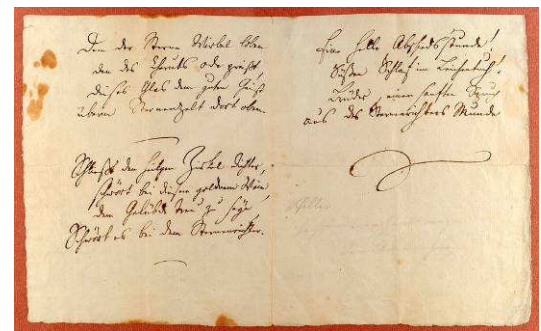 Den der Sterne Wirbel loben
den des Seraphs preist,
dieses Glas dem guten Geist
überm Sternenzelt dort oben.
Schließt den heilgen Zirkel dichter,
schwört bei diesem goldnen Wein
dem Gelübde treu zu seyn
Schwört es bei dem Sternenrichter.
Eine Abschiedsstunde!
Süßen Schlaf im Leichentuch!
Brüder, einen sanften Spruch
aus des Munde